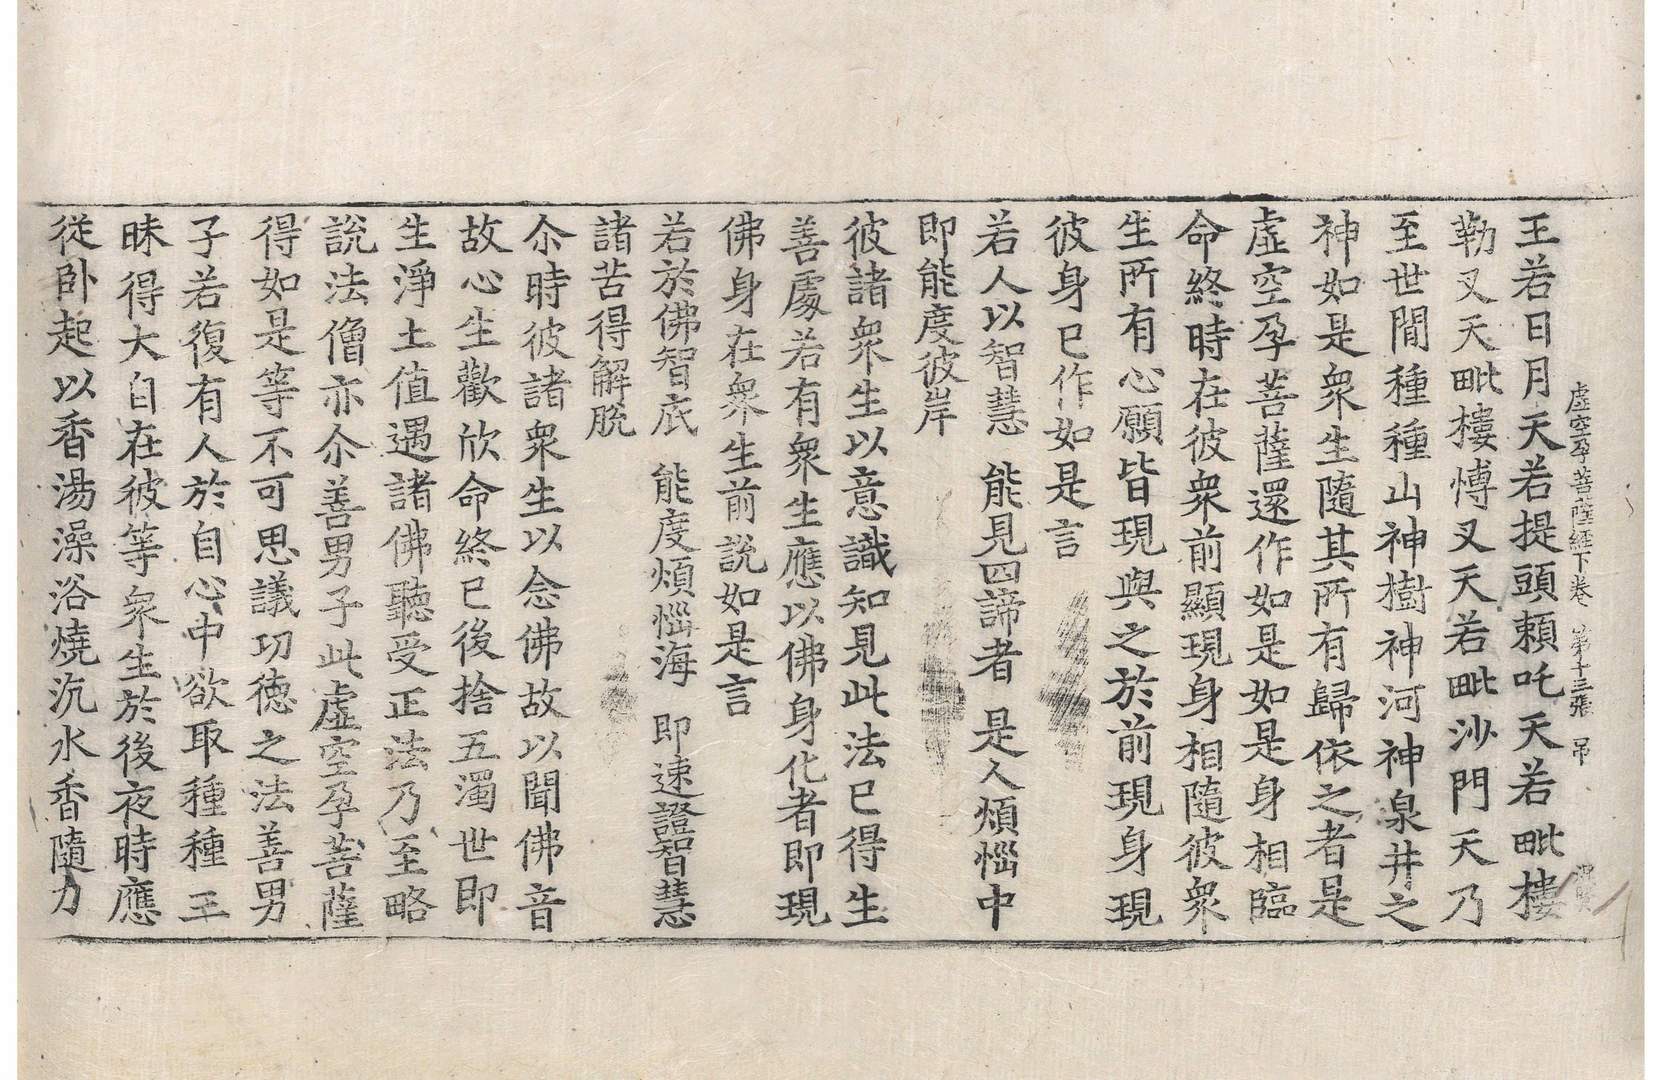 虛空孕菩薩經下卷　第十三張　吊
王若日月天若提頭賴吒天若毗樓
勒叉天毗樓愽叉天若毗沙門天乃
至世閒種種山神樹神河神泉井之
神如是衆生隨其所有歸依之者是
虛空孕菩薩還作如是如是身相臨
命終時在彼衆前顯現身相隨彼衆
生所有心願皆現與之於前現身現
彼身已作如是言
若人以智慧　能見四諦者　是人煩惱中
即能度彼岸
彼諸衆生以意識知見此法已得生
善處若有衆生應以佛身化者即現
佛身在衆生前說如是言
若於佛智底　能度煩惱海　即速證智慧
諸苦得解脫
尒時彼諸衆生以念佛故以聞佛音
故心生歡欣命終已後捨五濁世即
生淨土值遇諸佛聽受正法乃至略
說法僧亦尒善男子此虛空孕菩薩
得如是等不可思議功德之法善男
子若復有人於自心中欲取種種三
昧得大自在彼等衆生於後夜時應
從卧起以香湯澡浴燒沉水香隨力